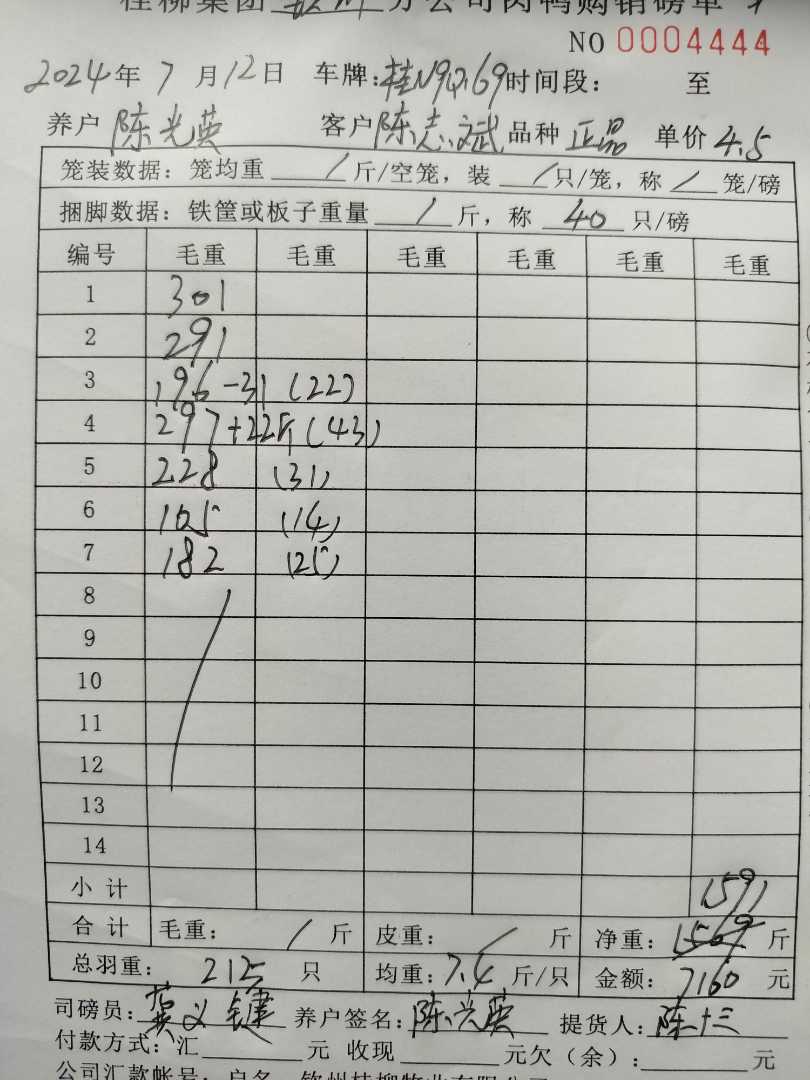 桂柳集团 钦州 分公司肉鸭购销磅单
NO 0004444
2024年 7 月 12 日 车牌: 时间段: 至
养户 陈光英 客户 陈志斌 品种 正品 单价 4.5
笼装数据: 笼均重 / 斤/空笼, 装 / 只/笼, 称 / 笼/磅
捆脚数据: 铁筐或板子重量 / 斤, 称 40 只/磅
编号 毛重 毛重 毛重 毛重 毛重 毛重
1 301
2 291
3 196-31 (22)
4 297+22斤 (43)
5 228 (31)
6 105 (14)
7 182 (25)
8
9
10
11
12
13
14
小计 1591
合计 毛重: / 斤 皮重: / 斤 净重: 1569 斤
总羽重: 215 只 均重: 7.4 斤/只 金额: 7160 元
司磅员: 养户签名: 陈光英 提货人: 陈十三
付款方式: 汇 元 收现 元欠(余): 元
公司汇款帐号: 户名 钦州桂柳牧业有限公司